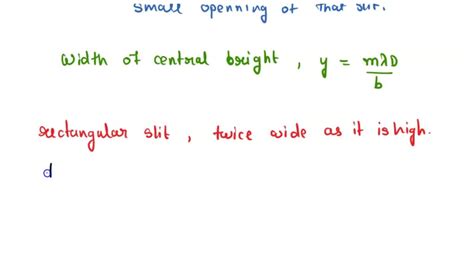 small openning of that slit.
width of central bright , y = mλD/b
rectangular slit , twice wide as it is high.
d